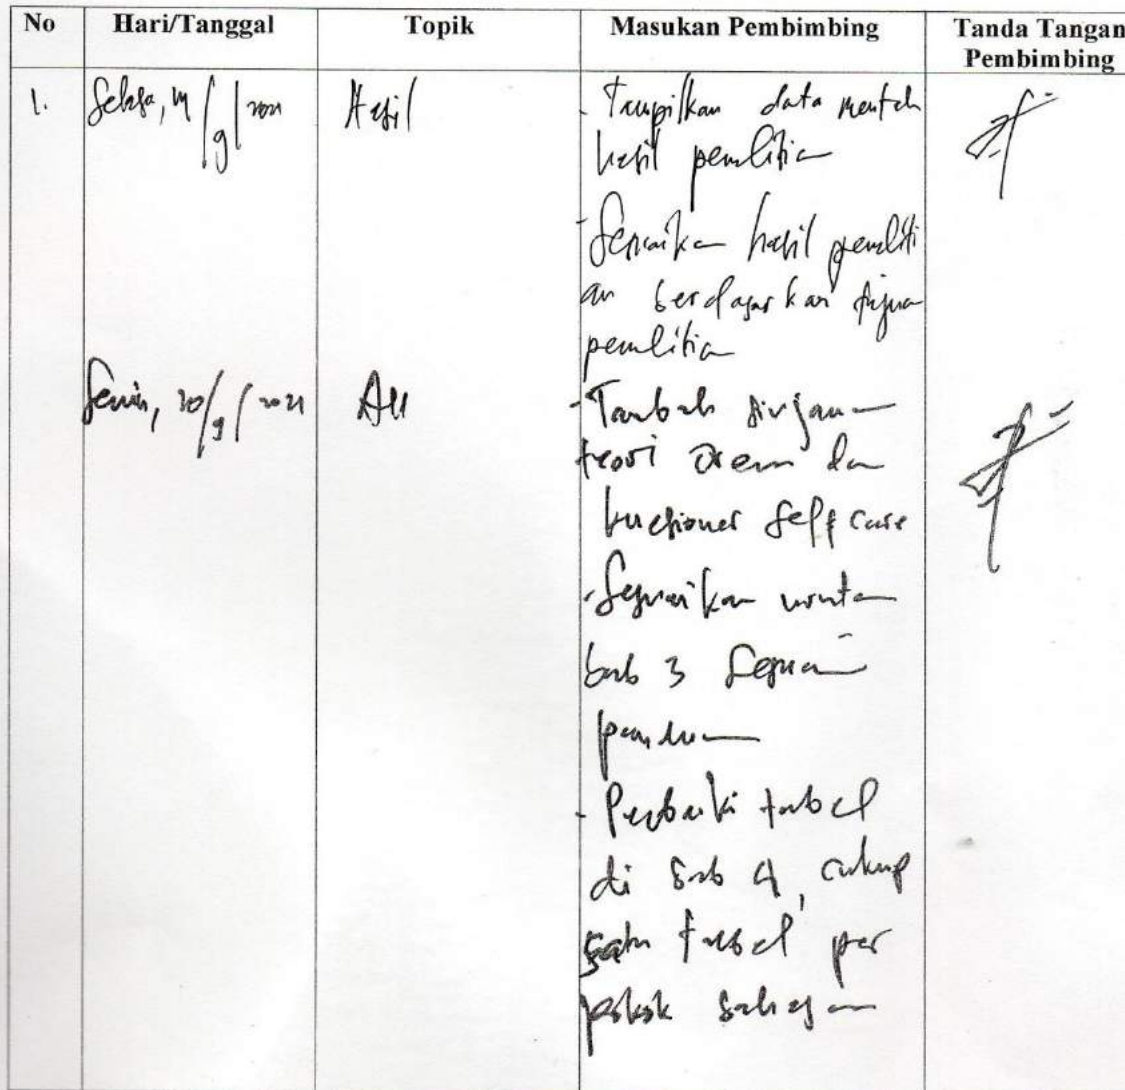 No Hari/Tanggal Topik Masukan Pembimbing Tanda Tangan Pembimbing
1. Selasa, 14/9/2021 Hasil - Tampilkan data mentah
hasil penelitian
- Sesuaikan hasil peneliti
an berdasarkan tujuan
penelitian
Senin, 20/9/2021 All - Tambah tinjauan
teori Orem dan
kuesioner Self care
- Sesuaikan urutan
bab 3 sesuai
panduan
- Perbaiki tabel
di bab 4, cukup
satu tabel per
pokok bahasan